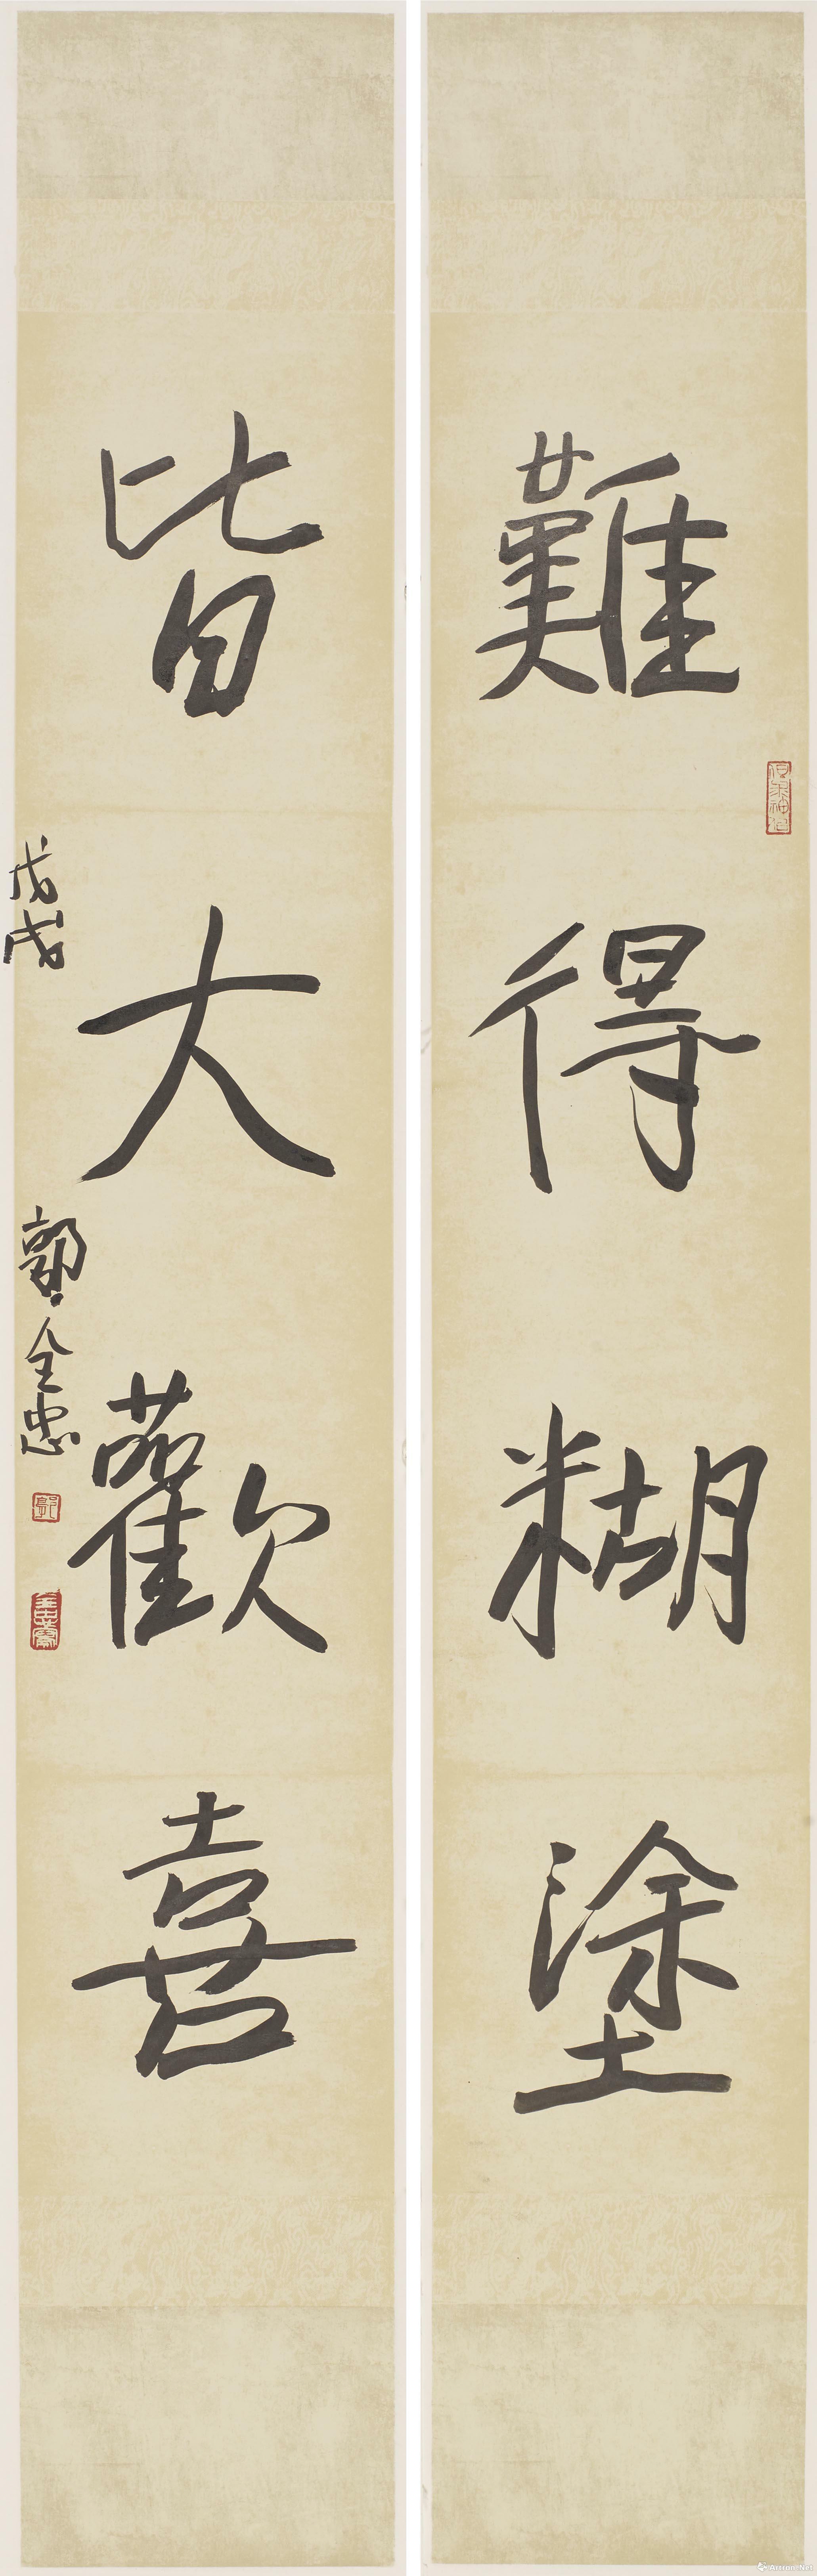 難得糊塗
皆大歡喜
戊戌 郭全忠
郭
ArtronNet